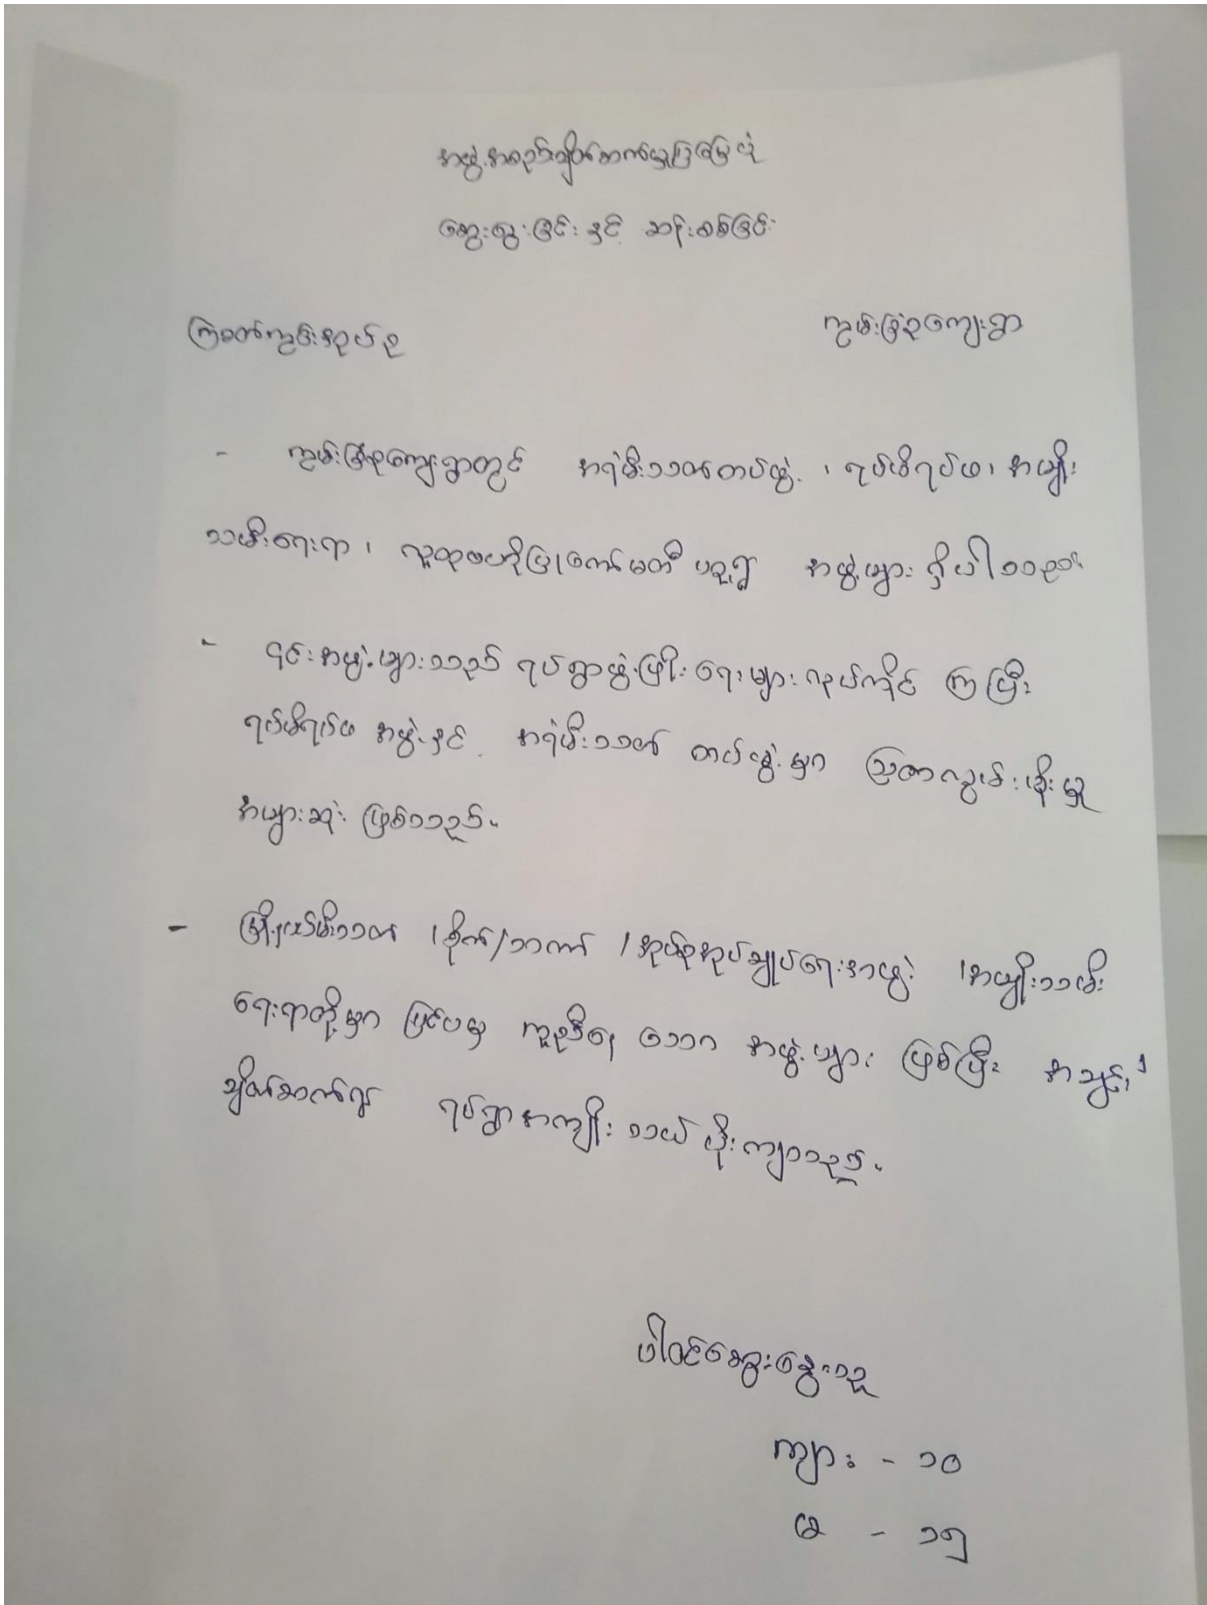 အဖွဲ့အစည်းချိတ်ဆက်မှုပြမြေပုံ
ဆွေးနွေးခြင်းနှင့် ဆန်းစစ်ခြင်း
ကြံခတ်ကွင်းအုပ်စု ကွမ်းခြံစုကျေးရွာ
- ကွမ်းခြံစုကျေးရွာတွင် အရံမီးသတ်တပ်ဖွဲ့၊ ရပ်မိရပ်ဖ၊ အမျိုး
သမီးရေးရာ၊ လူထုဗဟိုပြုကော်မတီ ဟူ၍ အဖွဲ့များ ရှိပါသည်။
- ၎င်းအဖွဲ့များသည် ရပ်ရွာဖွံ့ဖြိုးရေးများ လုပ်ကိုင် ကြပြီး
ရပ်မိရပ်ဖ အဖွဲ့နှင့် အရံမီးသတ် တပ်ဖွဲ့မှာ သြဇာလွှမ်းမိုးမှု
အများဆုံး ဖြစ်သည်။
- မြို့နယ်မီးသတ် ၊စိုက်/သကာ ၊အုပ်စုအုပ်ချုပ်ရေးအဖွဲ့ ၊အမျိုးသမီး
ရေးရာတို့မှာ ပြင်ပမှ ကူညီနေ သော အဖွဲ့များ ဖြစ်ပြီး အချင်းချင်း
ချိတ်ဆက်၍ ရပ်ရွာအကျိုး သယ်ပိုးကြသည်။
ပါဝင်ဆွေးနွေးသူ
ကျား - ၁၀
မ - ၁၅